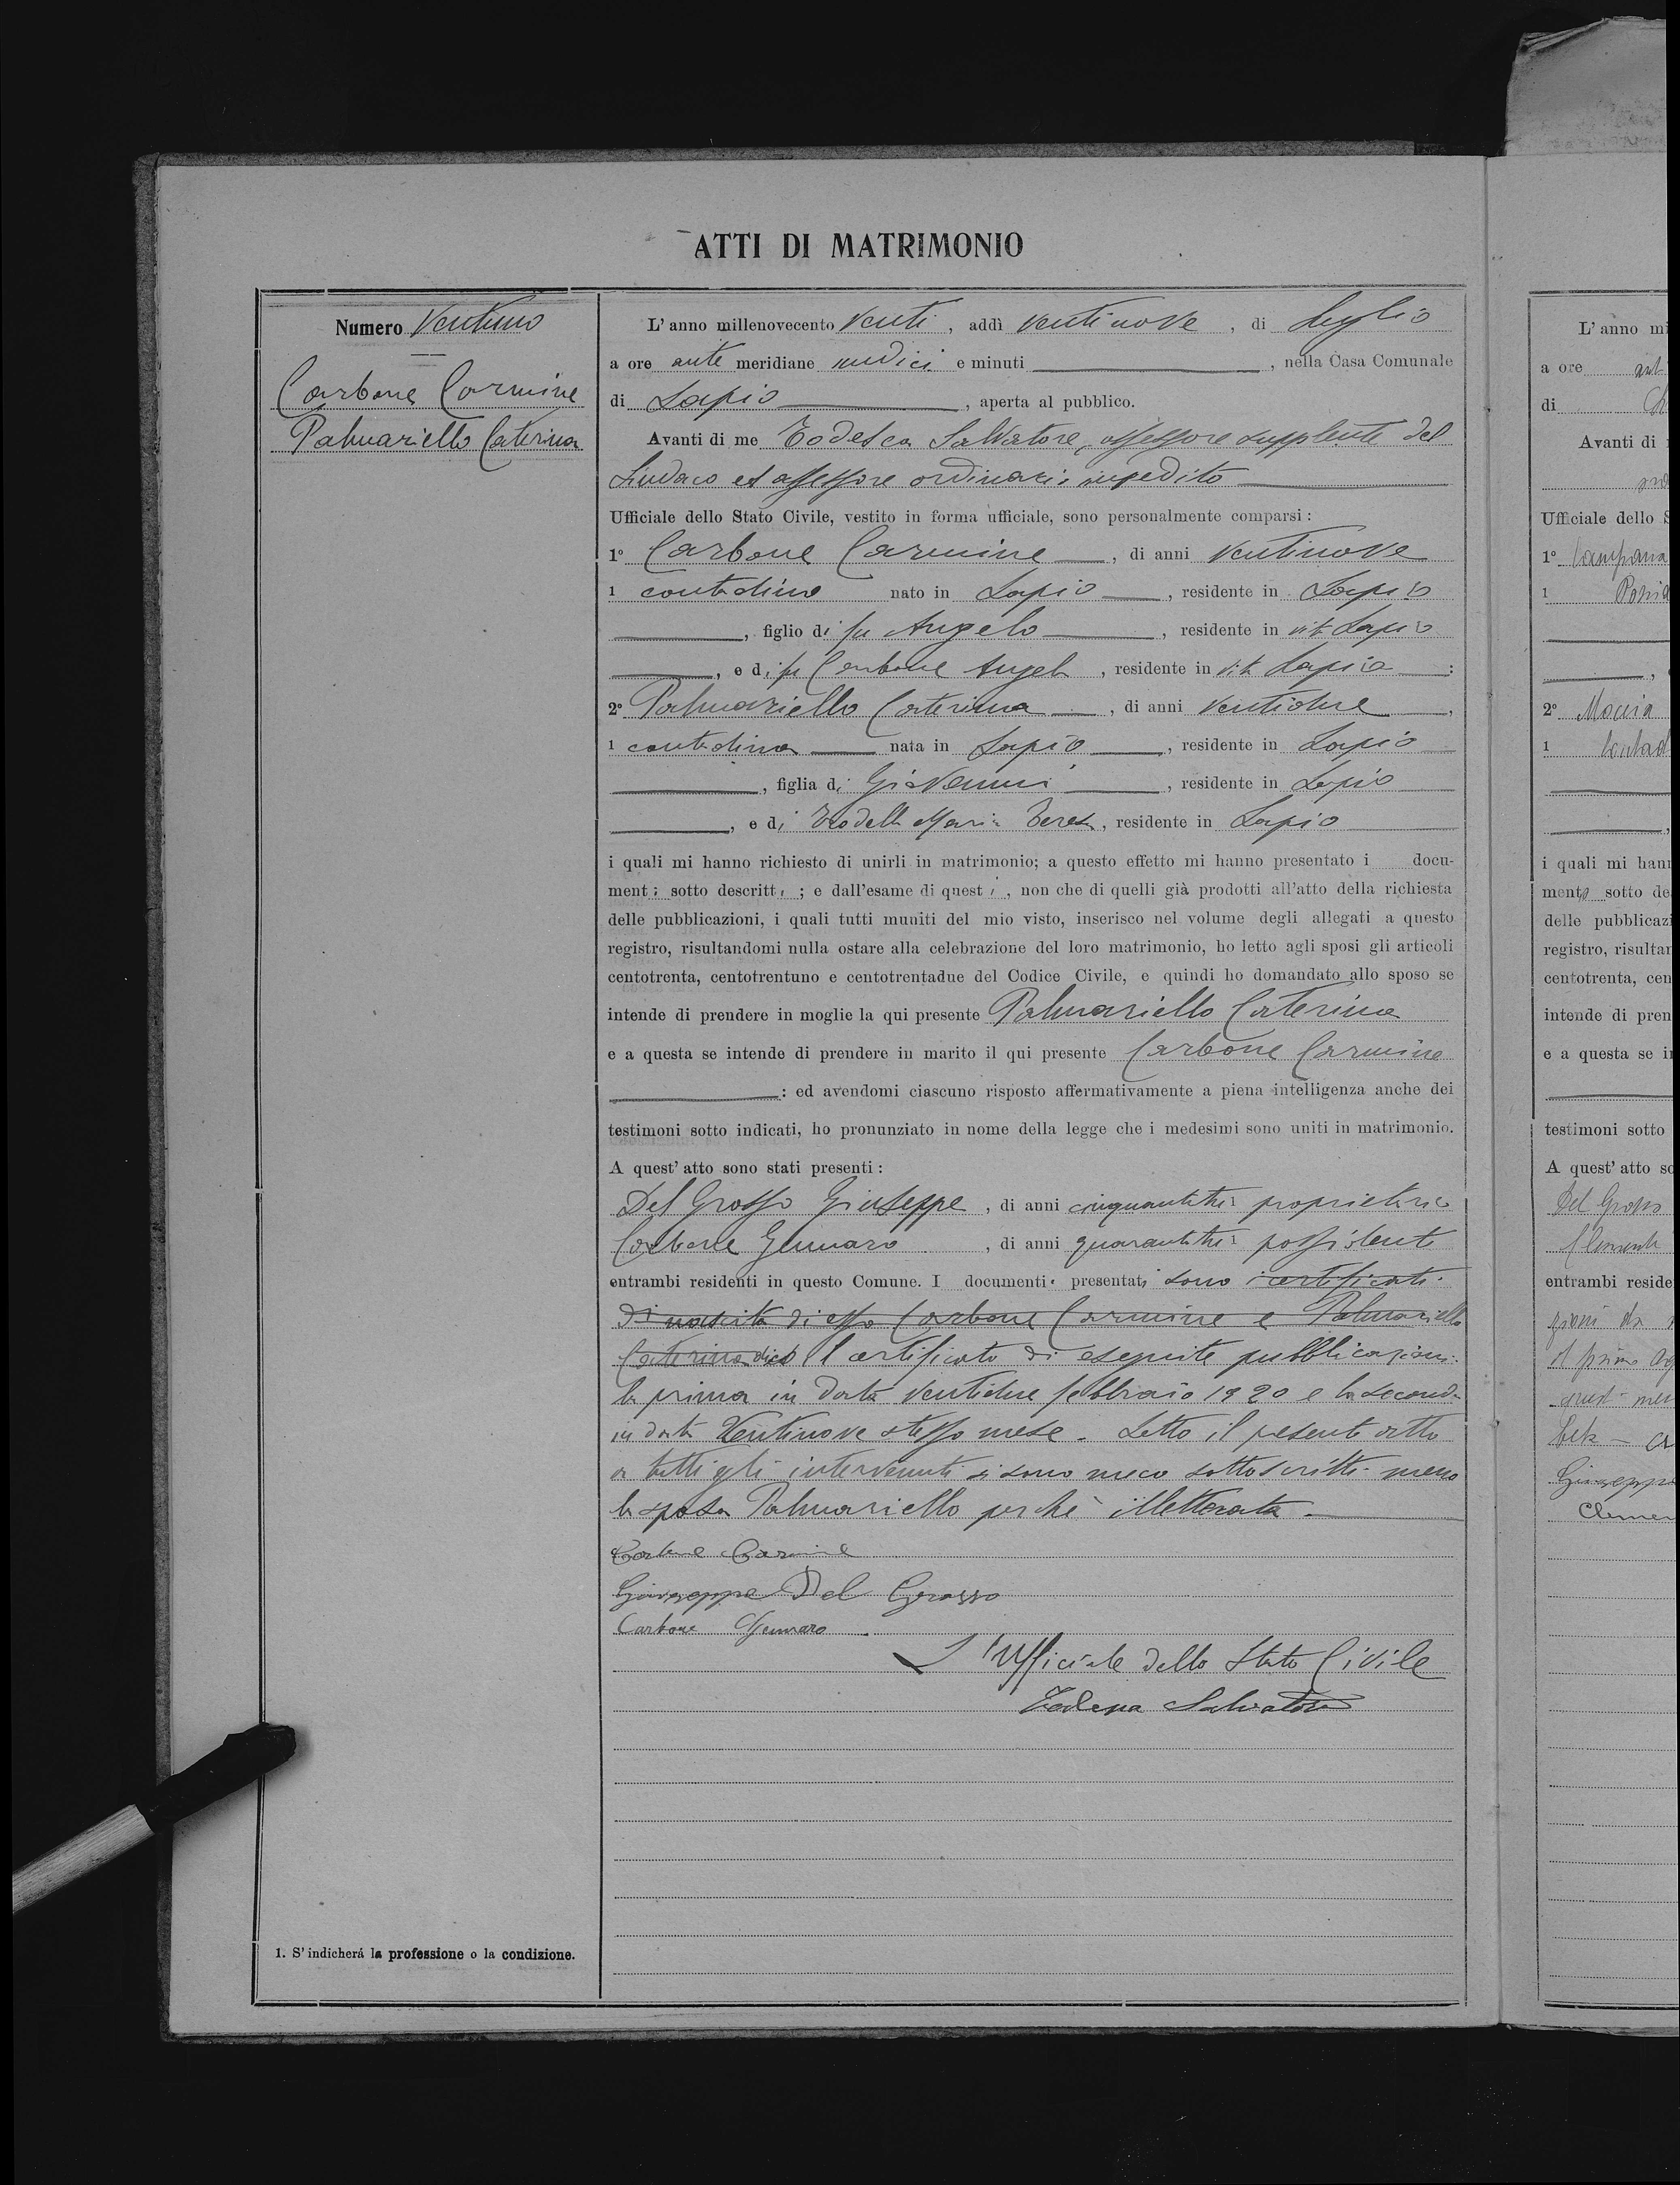 ATTI DI MATRIMONIO
Numero Ventuno
Carbone Carmine
Palmariello Caterina
L'anno millenovecento Venti, addì ventinove, di Luglio
a ore ante meridiane undici e minuti , nella Casa Comunale
di Lapio , aperta al pubblico.
Avanti di me Todesca Salvatore, assessore supplente del
Sindaco ed assessore ordinario impedito
Ufficiale dello Stato Civile, vestito in forma ufficiale, sono personalmente comparsi:
1° Carbone Carmine , di anni ventinove
1 contadino nato in Lapio , residente in Lapio
, figlio di fu Angelo , residente in vita Lapio
, e di fu Carbone Angela , residente in vita Lapio :
2° Palmariello Caterina , di anni ventidue ,
1 contadina nata in Lapio , residente in Lapio
, figlia di Giovanni , residente in Lapio
, e di Maria Teresa, residente in Lapio
i quali mi hanno richiesto di unirli in matrimonio; a questo effetto mi hanno presentato i docu-
menti sotto descritti ; e dall'esame di questi , non che di quelli già prodotti all'atto della richiesta
delle pubblicazioni, i quali tutti muniti del mio visto, inserisco nel volume degli allegati a questo
registro, risultandomi nulla ostare alla celebrazione del loro matrimonio, ho letto agli sposi gli articoli
centotrenta, centotrentuno e centotrentadue del Codice Civile, e quindi ho domandato allo sposo se
intende di prendere in moglie la qui presente Palmariello Caterina
e a questa se intende di prendere in marito il qui presente Carbone Carmine
: ed avendomi ciascuno risposto affermativamente a piena intelligenza anche dei
testimoni sotto indicati, ho pronunziato in nome della legge che i medesimi sono uniti in matrimonio.
A quest'atto sono stati presenti:
Del Grosso Giuseppe , di anni cinquantatrè proprietario
Carbone Gennaro , di anni quarantatrè possidente
entrambi residenti in questo Comune. I documenti presentati sono i certificati
di nascita di esso Carbone Carmine e Palmariello
Caterina dico il certificato di eseguite pubblicazioni:
la prima in data ventidue febbraio 1920 e la seconda
in data Ventinove stesso mese. Letto il presente atto
a tutti gli intervenuti si sono meco sottoscritti meno
la sposa Palmariello perchè illetterata.
Carbone Carmine
Giuseppe Del Grosso
Carbone Gennaro
L'Ufficiale dello Stato Civile
Todesca Salvatore
1. S'indicherá la professione o la condizione.
L'anno mi
a ore ant
di
Avanti di
Ufficiale dello S
1° Campana
1
2°
1 Contad
i quali mi hann
mento sotto de
delle pubblicazi
registro, risultan
centotrenta, cen
intende di pren
e a questa se i
testimoni sotto
A quest'atto so
Del Grosso
Clemente
entrambi reside
Giuseppe
Clemen